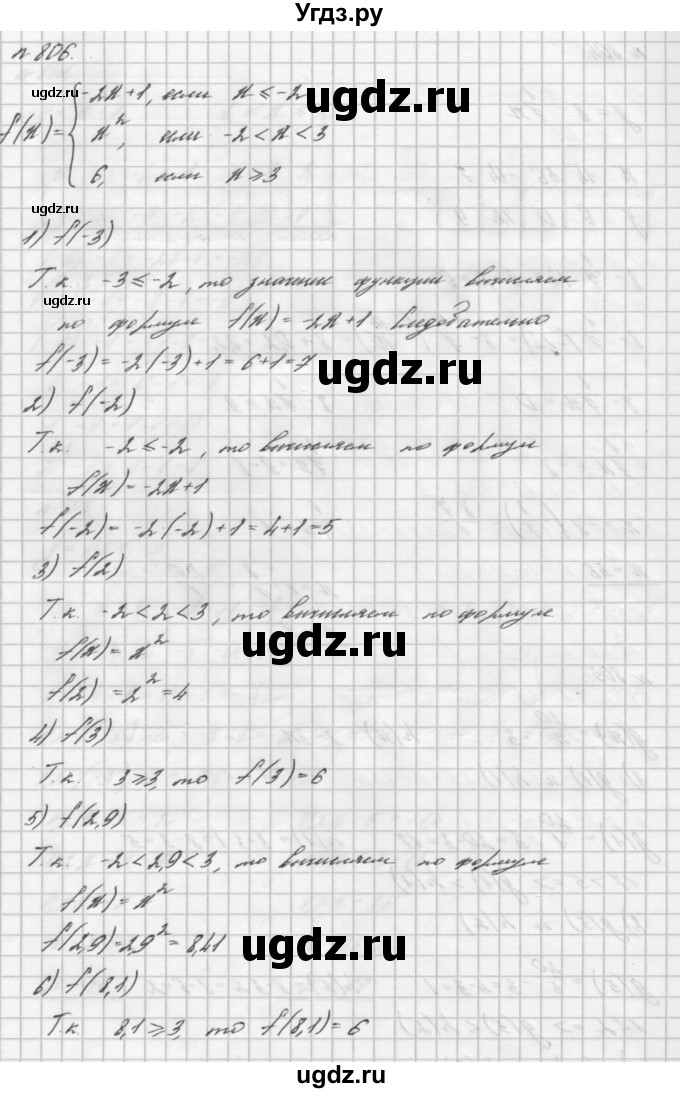 Угдз.ру
n 806.
ugdz.ru
-2x+1, если x ≤ -2
ugdz.ru
f(x)= { x², если -2 < x < 3
ugdz.ru
6, если x ≥ 3
ugdz.ru
1) f(-3)
Т.к. -3 ≤ -2, то значение функции вычисляем
ugdz.ru
по формуле f(x) = -2x+1. Следовательно
f(-3) = -2·(-3)+1 = 6+1=7
ugdz.ru
2) f(-2)
Т.к. -2 ≤ -2, то вычисляем по формуле
f(x) = -2x+1
f(-2) = -2·(-2)+1 = 4+1=5
3) f(2)
Т.к. -2<2<3, то вычисляем по формуле
f(x) = x²
ugdz.ru
f(2) = 2² = 4
4) f(3)
Т.к. 3 ≥ 3, то f(3) = 6
ugdz.ru
5) f(2,9)
Т.к. -2 < 2,9 < 3, то вычисляем по формуле
f(x) = x²
f(2,9)=2,9² = 8,41
ugdz.ru
6) f(8,1)
Т.к. 8,1 ≥ 3, то f(8,1) = 6
ugdz.ru